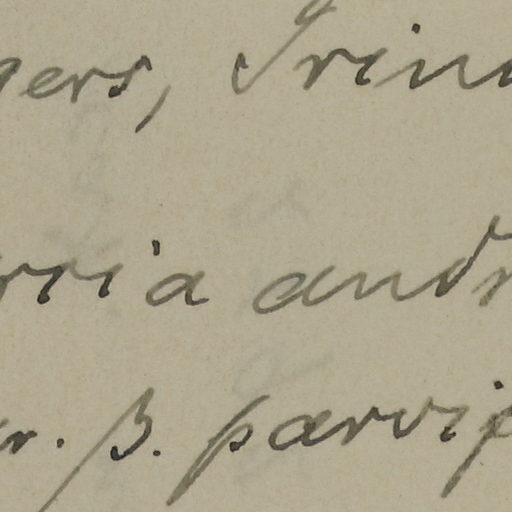 gers, Trin
ria andr
r. β. parvip